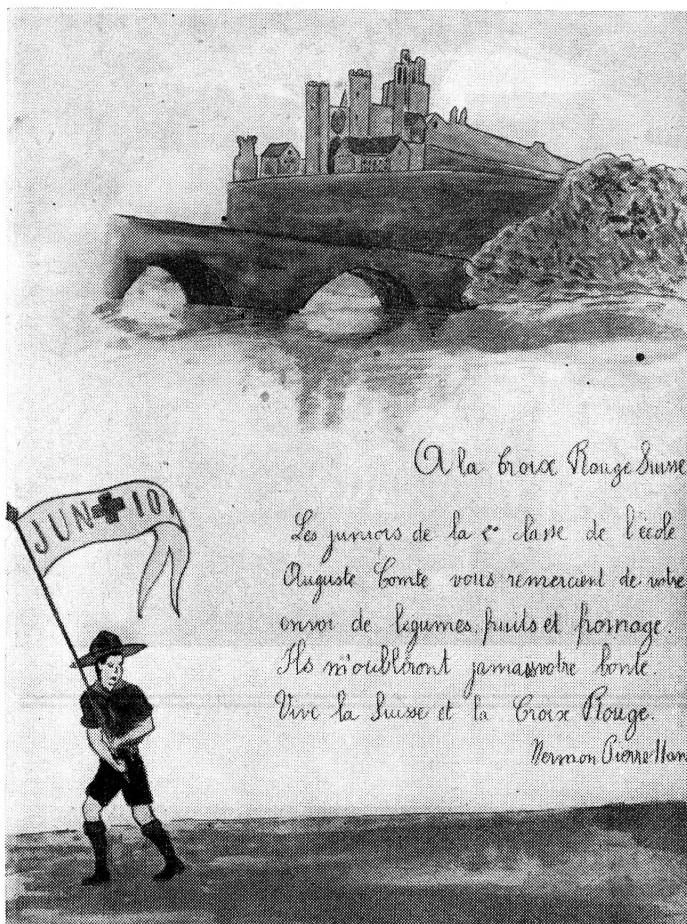 JUN IOR
A la Croix Rouge Suisse
Les juniors de la 2e classe de l'école
Auguste Comte vous remercient de votre
envoi de légumes, fruits et fromage.
Ils n'oublîront jamais votre bonté.
Vive la Suisse et la Croix Rouge.
Pierre